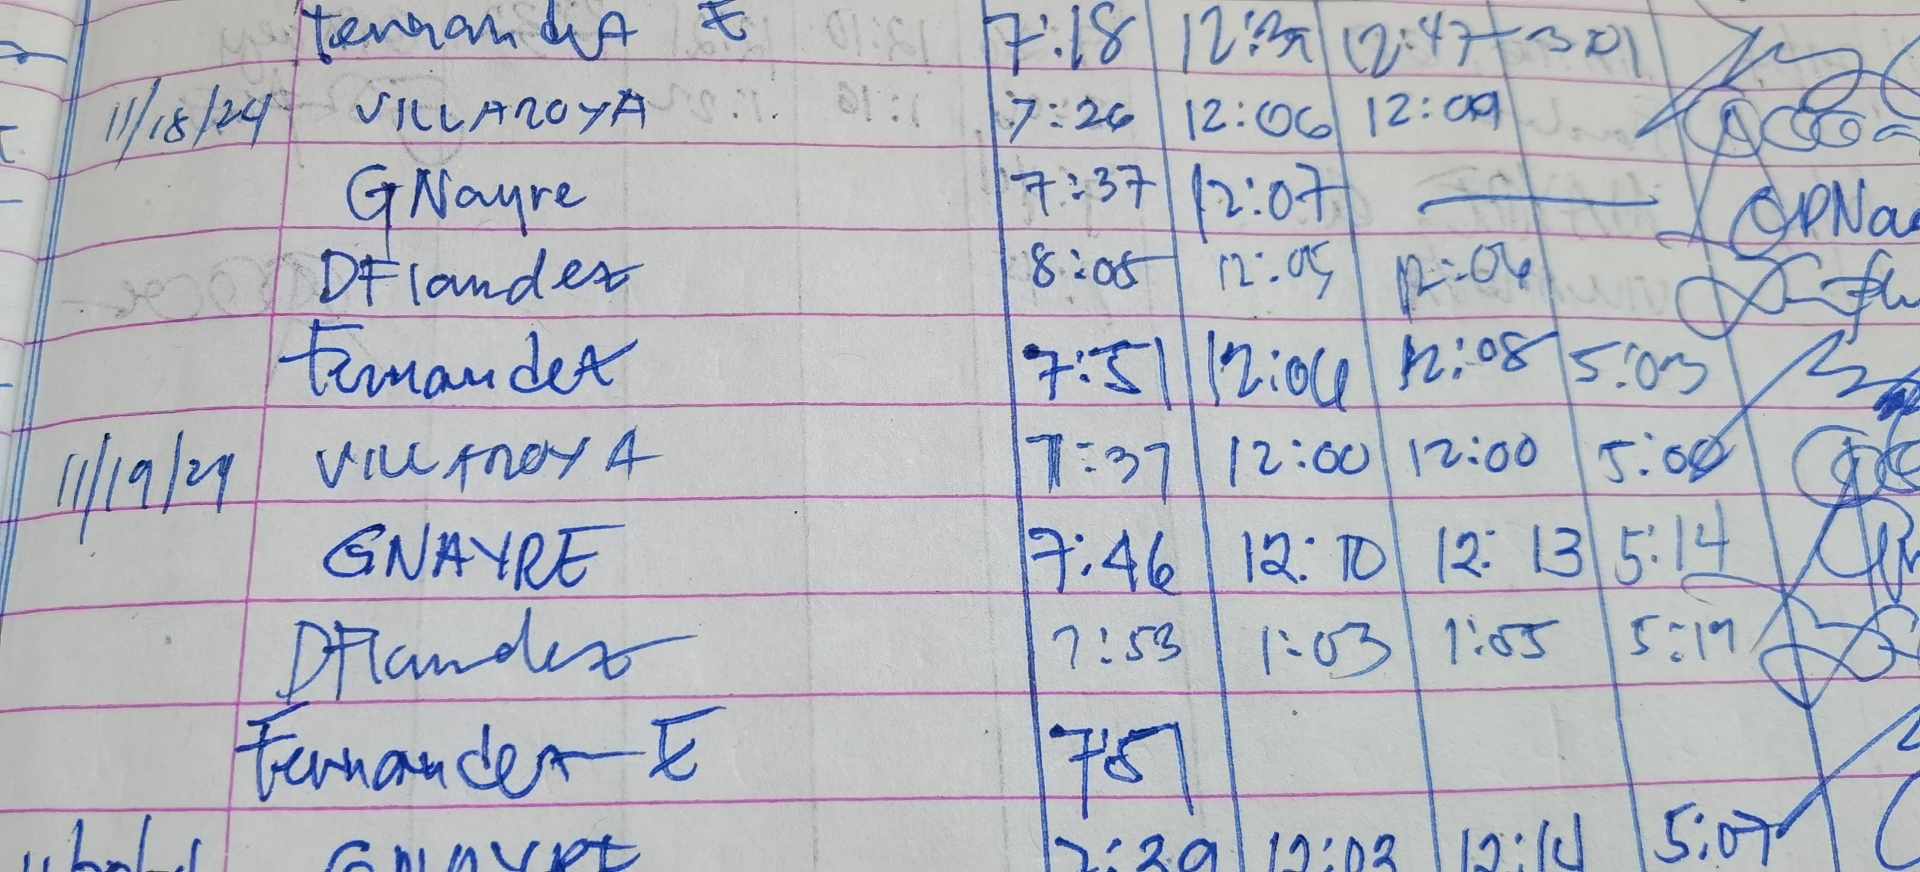 Fernandez E 7:18 12:39 12:47 3:01
11/18/24 VILLAROYA 7:26 12:06 12:09
GNayre 7:37 12:07 —
DFlandez 8:05 12:05 12:06
Fernandez 7:51 12:06 12:08 5:03
11/19/24 VILLAROYA 7:37 12:00 12:00 5:00
GNAYRE 7:46 12:10 12:13 5:14
DFlandez 7:53 1:03 1:05 5:19
Fernandez E 7:51
GNAYRE 7:39 12:03 12:14 5:07